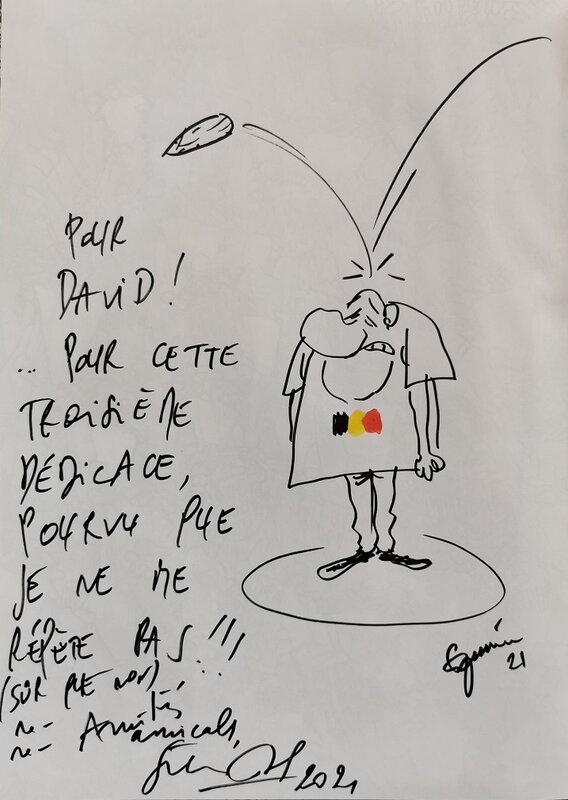 POUR
DAVID !
.. POUR CETTE
TROISIÈME
DÉDICACE,
POURVU QUE
JE NE ME
RÉPÈTE PAS !!!
(SÛR QUE NON)
RE- Amitiés
RE- amicals,
2021
21